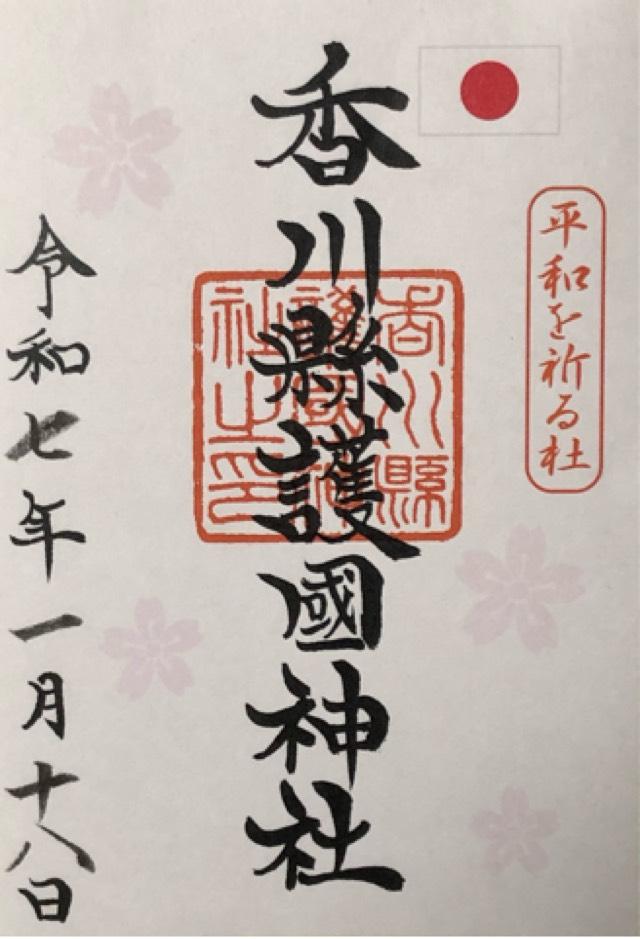 平和を祈る杜
香川縣護國神社
香川縣護國神社之印
令和七年一月十八日